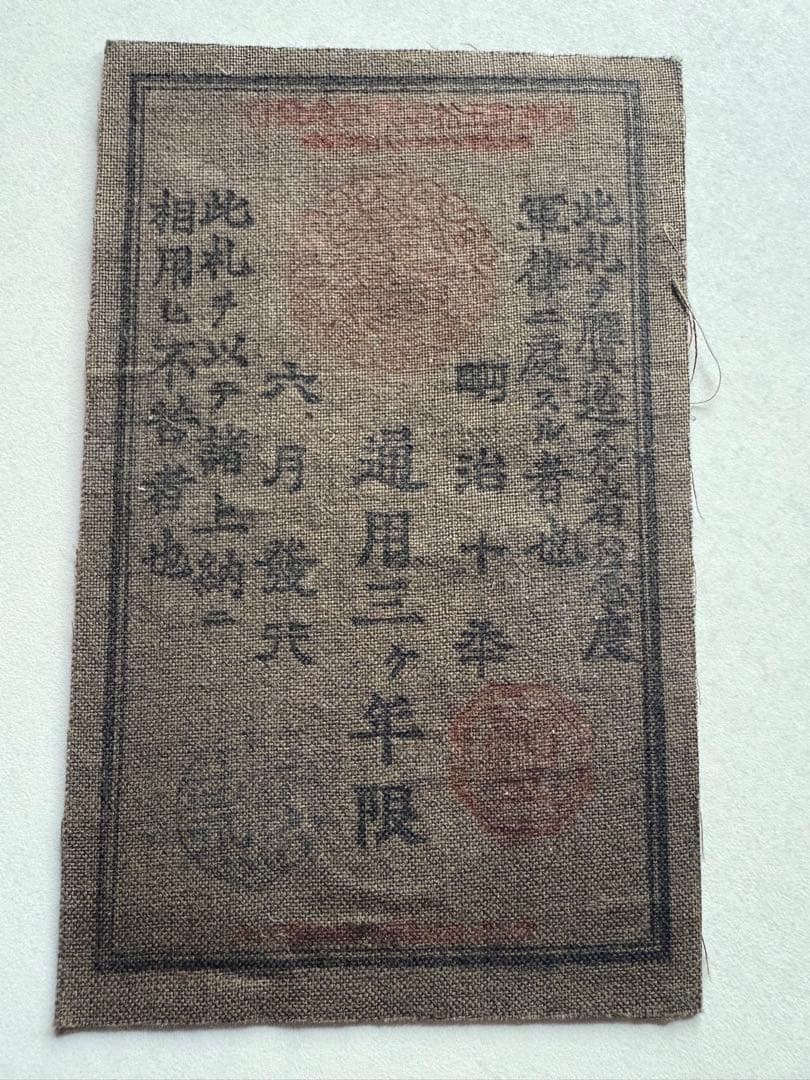 此札ヲ贋造スル者ハ急度
軍律ニ處スル者也
明治十年
通用三ヶ年限
六月發行
此札ヲ以テ諸上納ニ
相用ヒ不苦者也